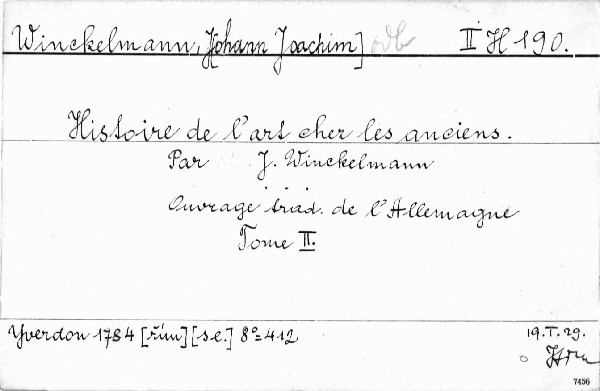 Winckelmann, J[ohann Joachim] odb II H 190.
Histoire de l'art cher les anciens.
Par J. Winckelmann
. . .
Ouvrage trad. de l'Allemagne
Tome II.
Yverdon 1784 [řím] [s.e.] 8°=412
19.I.29.
7456